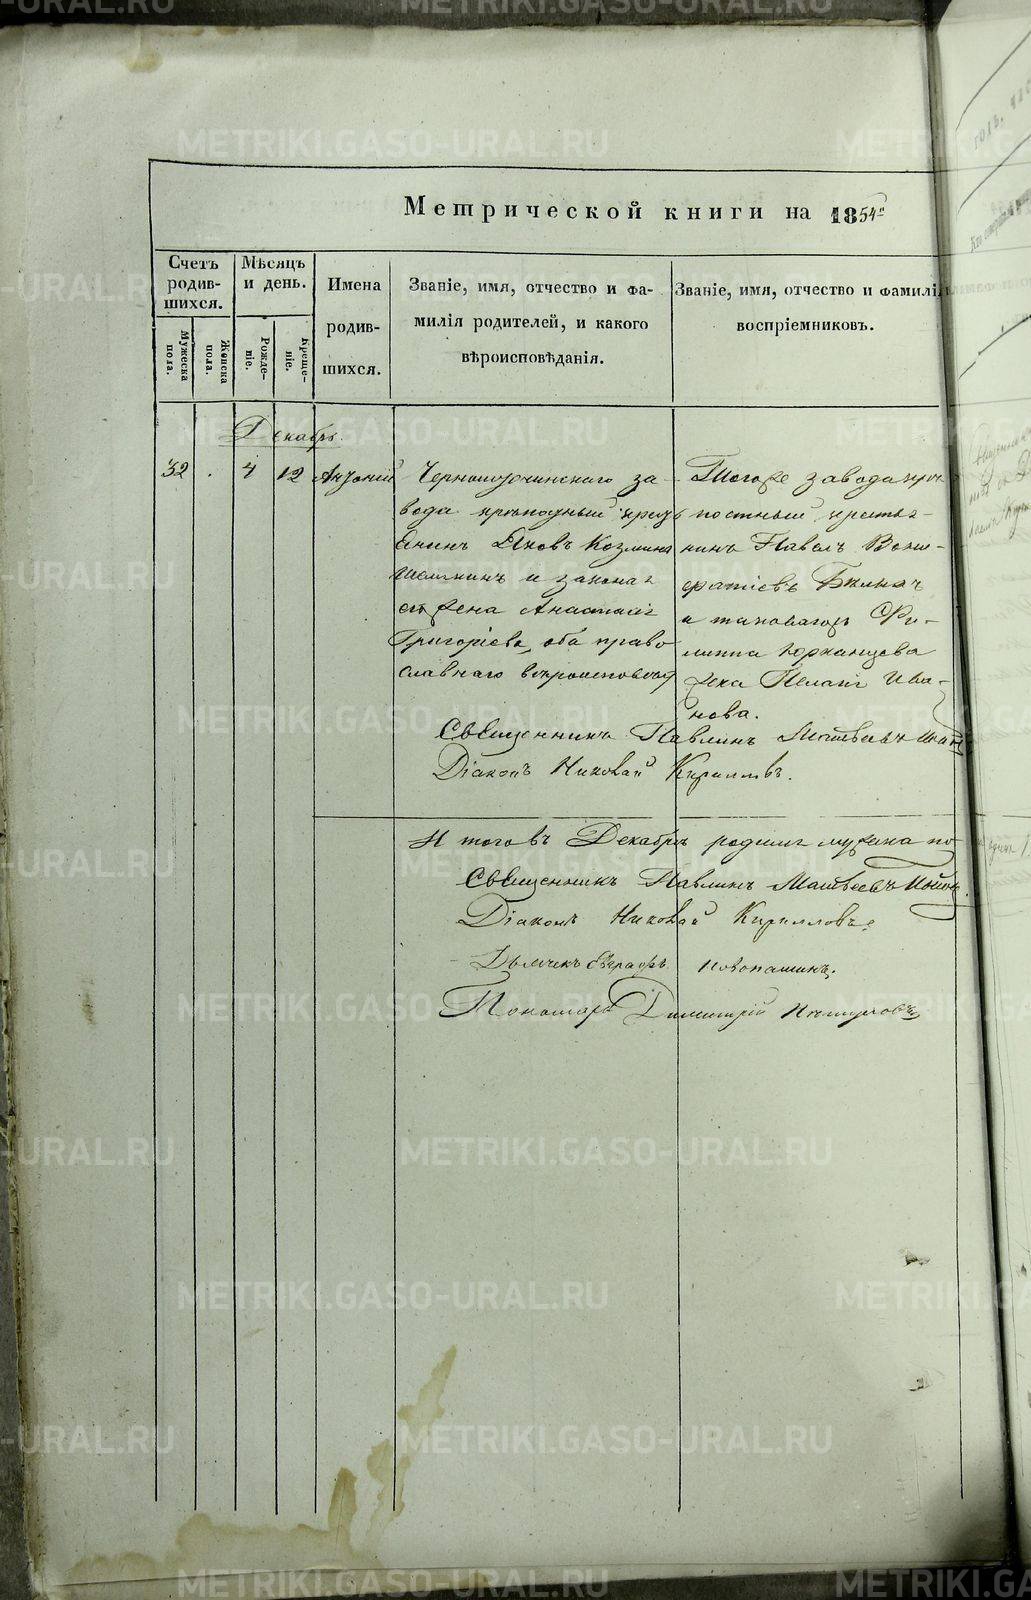 Метрической книги на 1854
Счетъ родив-шихся.
Мужеска пола.
Женска пола.
Мѣсяцъ и день.
Рожде-ніе.
Креще-ніе.
Имена
родив-
шихся.
Званіе, имя, отчество и фа-
милія родителей, и какого
вѣроисповѣданія.
Званіе, имя, отчество и фамилія
воспріемниковъ.
Декабрь.
32 4 12 Антоній
Черноисточинскаго за-
вода крѣпостный кресть
янинъ Яковъ Козминъ
и законная
его жена Анастасія
Григоріева, оба право
славнаго вѣроисповѣд
Тогоже завода крѣ
постный крестья-
нинъ Павелъ
и таковагожъ Фи-
липпа Юрханцова
жена Пелагія Ива-
нова.
Священникъ Павлинъ Матвеевъ
Діаконъ Николай Кирилловъ.
Итого въ Декабрѣ родился мужеска по
Священникъ Павлинъ Матвеевъ
Діаконъ Николай Кирилловъ.
Дьячекъ Евграфъ Новопашинъ.
Пономарь Димитрій
METRIKI.GASO-URAL.RU